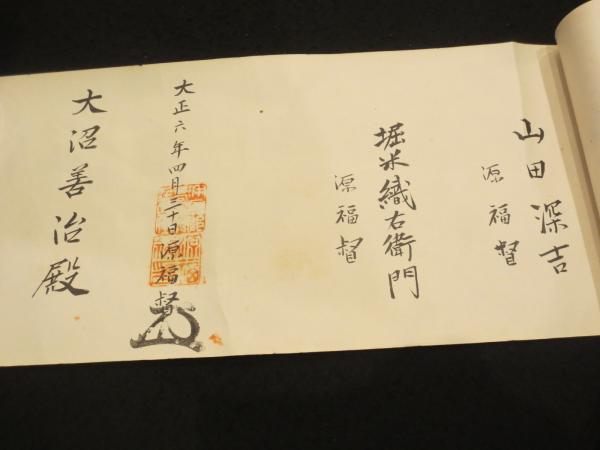 山田深吉
源福督
堀米織右衛門
源福督
大正六年四月三十日源福督
大沼善治殿